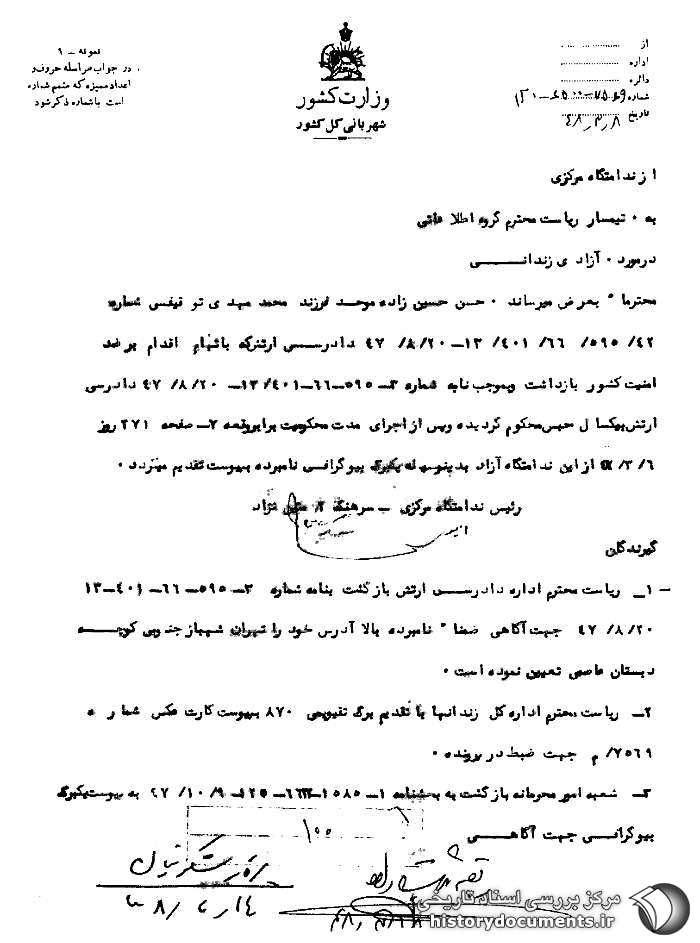 نمونه – ۱
در جواب مراسله حروف و
اعداد ممیزه که منضم شماره
است باشماره ذکر شود
وزارت کشور
شهربانی کل کشور
از
اداره
دائره
شماره
تاریخ ۴۸٫۳٫۸
از ندامتگاه مرکزی
به ۰ تیمسار ریاست محترم گروه اطلاعاتی
درمورد ۰ آزادی زندانی
محترما" بعرض میرساند ۰ حسن حسین زاده موحد فرزند محمد مهدی توقیفی شماره
۴۲/ ۵۹۵/ ۶۶/ ۴۰۱/ ۱۳ــ ۴۷/۸/۲۰ دادرسی ارتش که باتهام اقدام بر ضد
امنیت کشور بازداشت وبموجب نامه شماره ۳ــ۵۹۵ــ۶۶ــ۴۰۱/۱۳ــ ۴۷/۸/۲۰ دادرسی
ارتش بیکسال حبس محکوم گردیده وپس از اجرای مدت محکومیت برابر صفحه ۲ــ ۲۷۱ روز
۳/۶ از این ندامتگاه آزاد بدینوسیله یکبرگ بیوگرافی نامبرده بپیوست تقدیم میگردد ۰
رئیس ندامتگاه مرکزی ــ سرهنگ ۲ نژاد
گیرندگان
۱ــ ریاست محترم اداره دادرسی ارتش بازگشت بنامه شماره ۳ــ ۵۹۵ــ ۶۶ــ ۴۰۱ــ۱۳
۴۷/۸/۲۰ جهت آگاهی ضمنا" نامبرده بالا آدرس خود را تهران شهباز جنوبی کوچه
دبستان عاصمی تعیین نموده است ۰
۲ــ ریاست محترم اداره کل زندانها با تقدیم برگ تفهیمی ۸۷۰ بپیوست کارت عکس شماره
۷۵۶۹/ م جهت ضبط در پرونده ۰
۳ــ شعبه امور محرمانه بازگشت به بخشنامه ۱ــ ۱۵۸۵ ۴۷/۱۰/۹ به پیوست یکبرگ
بیوگرافی جهت آگاهی
۱۰۰
مرکز بررسی اسناد تاریخی
historydocuments.ir